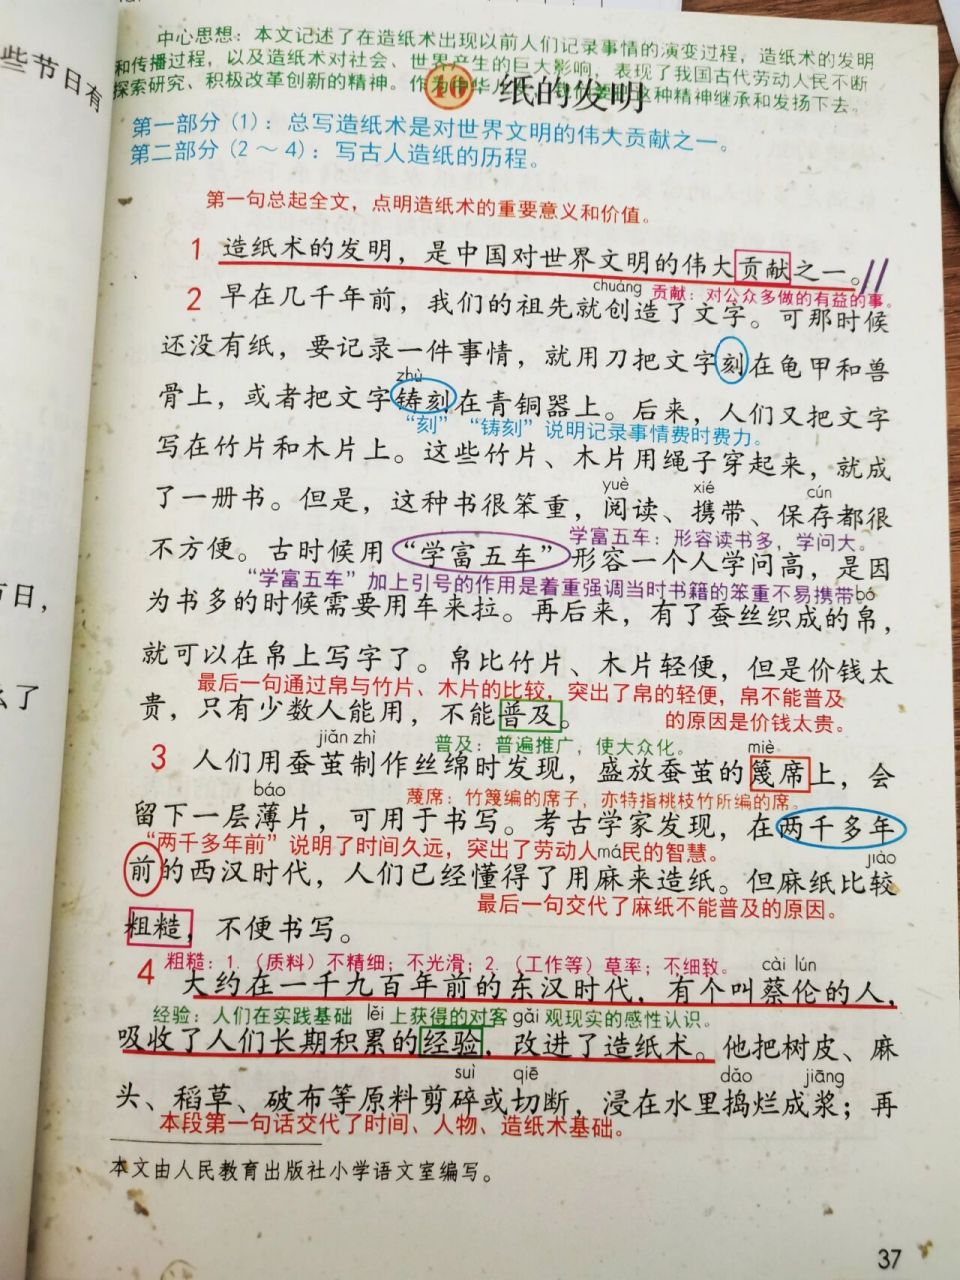 些节日有
中心思想：本文记述了在造纸术出现以前人们记录事情的演变过程，造纸术的发明
和传播过程，以及造纸术对社会、世界产生的巨大影响，表现了我国古代劳动人民不断
探索研究、积极改革创新的精神。作为中华儿女，我们要把这种精神继承和发扬下去。
10 纸的发明
第一部分（1）：总写造纸术是对世界文明的伟大贡献之一。
第二部分（2～4）：写古人造纸的历程。
第一句总起全文，点明造纸术的重要意义和价值。
1 造纸术的发明，是中国对世界文明的伟大贡献之一。
chuàng 贡献：对公众多做的有益的事。
2 早在几千年前，我们的祖先就创造了文字。可那时候
还没有纸，要记录一件事情，就用刀把文字刻在龟甲和兽
zhù
骨上，或者把文字铸刻在青铜器上。后来，人们又把文字
“刻”“铸刻”说明记录事情费时费力。
写在竹片和木片上。这些竹片、木片用绳子穿起来，就成
yuè xié cún
了一册书。但是，这种书很笨重，阅读、携带、保存都很
学富五车：形容读书多，学问大。
不方便。古时候用“学富五车”形容一个人学问高，是因
“学富五车”加上引号的作用是着重强调当时书籍的笨重不易携带 bó
为书多的时候需要用车来拉。再后来，有了蚕丝织成的帛，
就可以在帛上写字了。帛比竹片、木片轻便，但是价钱太
最后一句通过帛与竹片、木片的比较，突出了帛的轻便，帛不能普及
贵，只有少数人能用，不能普及。
的原因是价钱太贵。
jiǎn zhì 普及：普遍推广，使大众化。 miè
3 人们用蚕茧制作丝绵时发现，盛放蚕茧的篾席上，会
báo 篾席：竹篾编的席子，亦特指桃枝竹所编的席。
留下一层薄片，可用于书写。考古学家发现，在两千多年
“两千多年前”说明了时间久远，突出了劳动人má民的智慧。
jiào
前的西汉时代，人们已经懂得了用麻来造纸。但麻纸比较
最后一句交代了麻纸不能普及的原因。
粗糙，不便书写。
粗糙：1.（质料）不精细；不光滑；2.（工作等）草率；不细致。 cài lún
4 大约在一千九百年前的东汉时代，有个叫蔡伦的人，
经验：人们在实践基础 lěi 上获得的对客 gǎi 观现实的感性认识。
吸收了人们长期积累的经验，改进了造纸术。他把树皮、麻
suì qiē dǎo jiāng
头、稻草、破布等原料剪碎或切断，浸在水里捣烂成浆；再
本段第一句话交代了时间、人物、造纸术基础。
本文由人民教育出版社小学语文室编写。
37